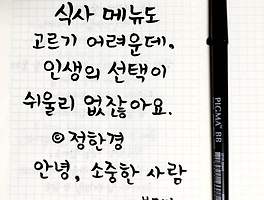 식사 메뉴도
고르기 어려운데,
인생의 선택이
쉬울리 없잖아요.
©정한경
안녕, 소중한 사람
PIGMA BB